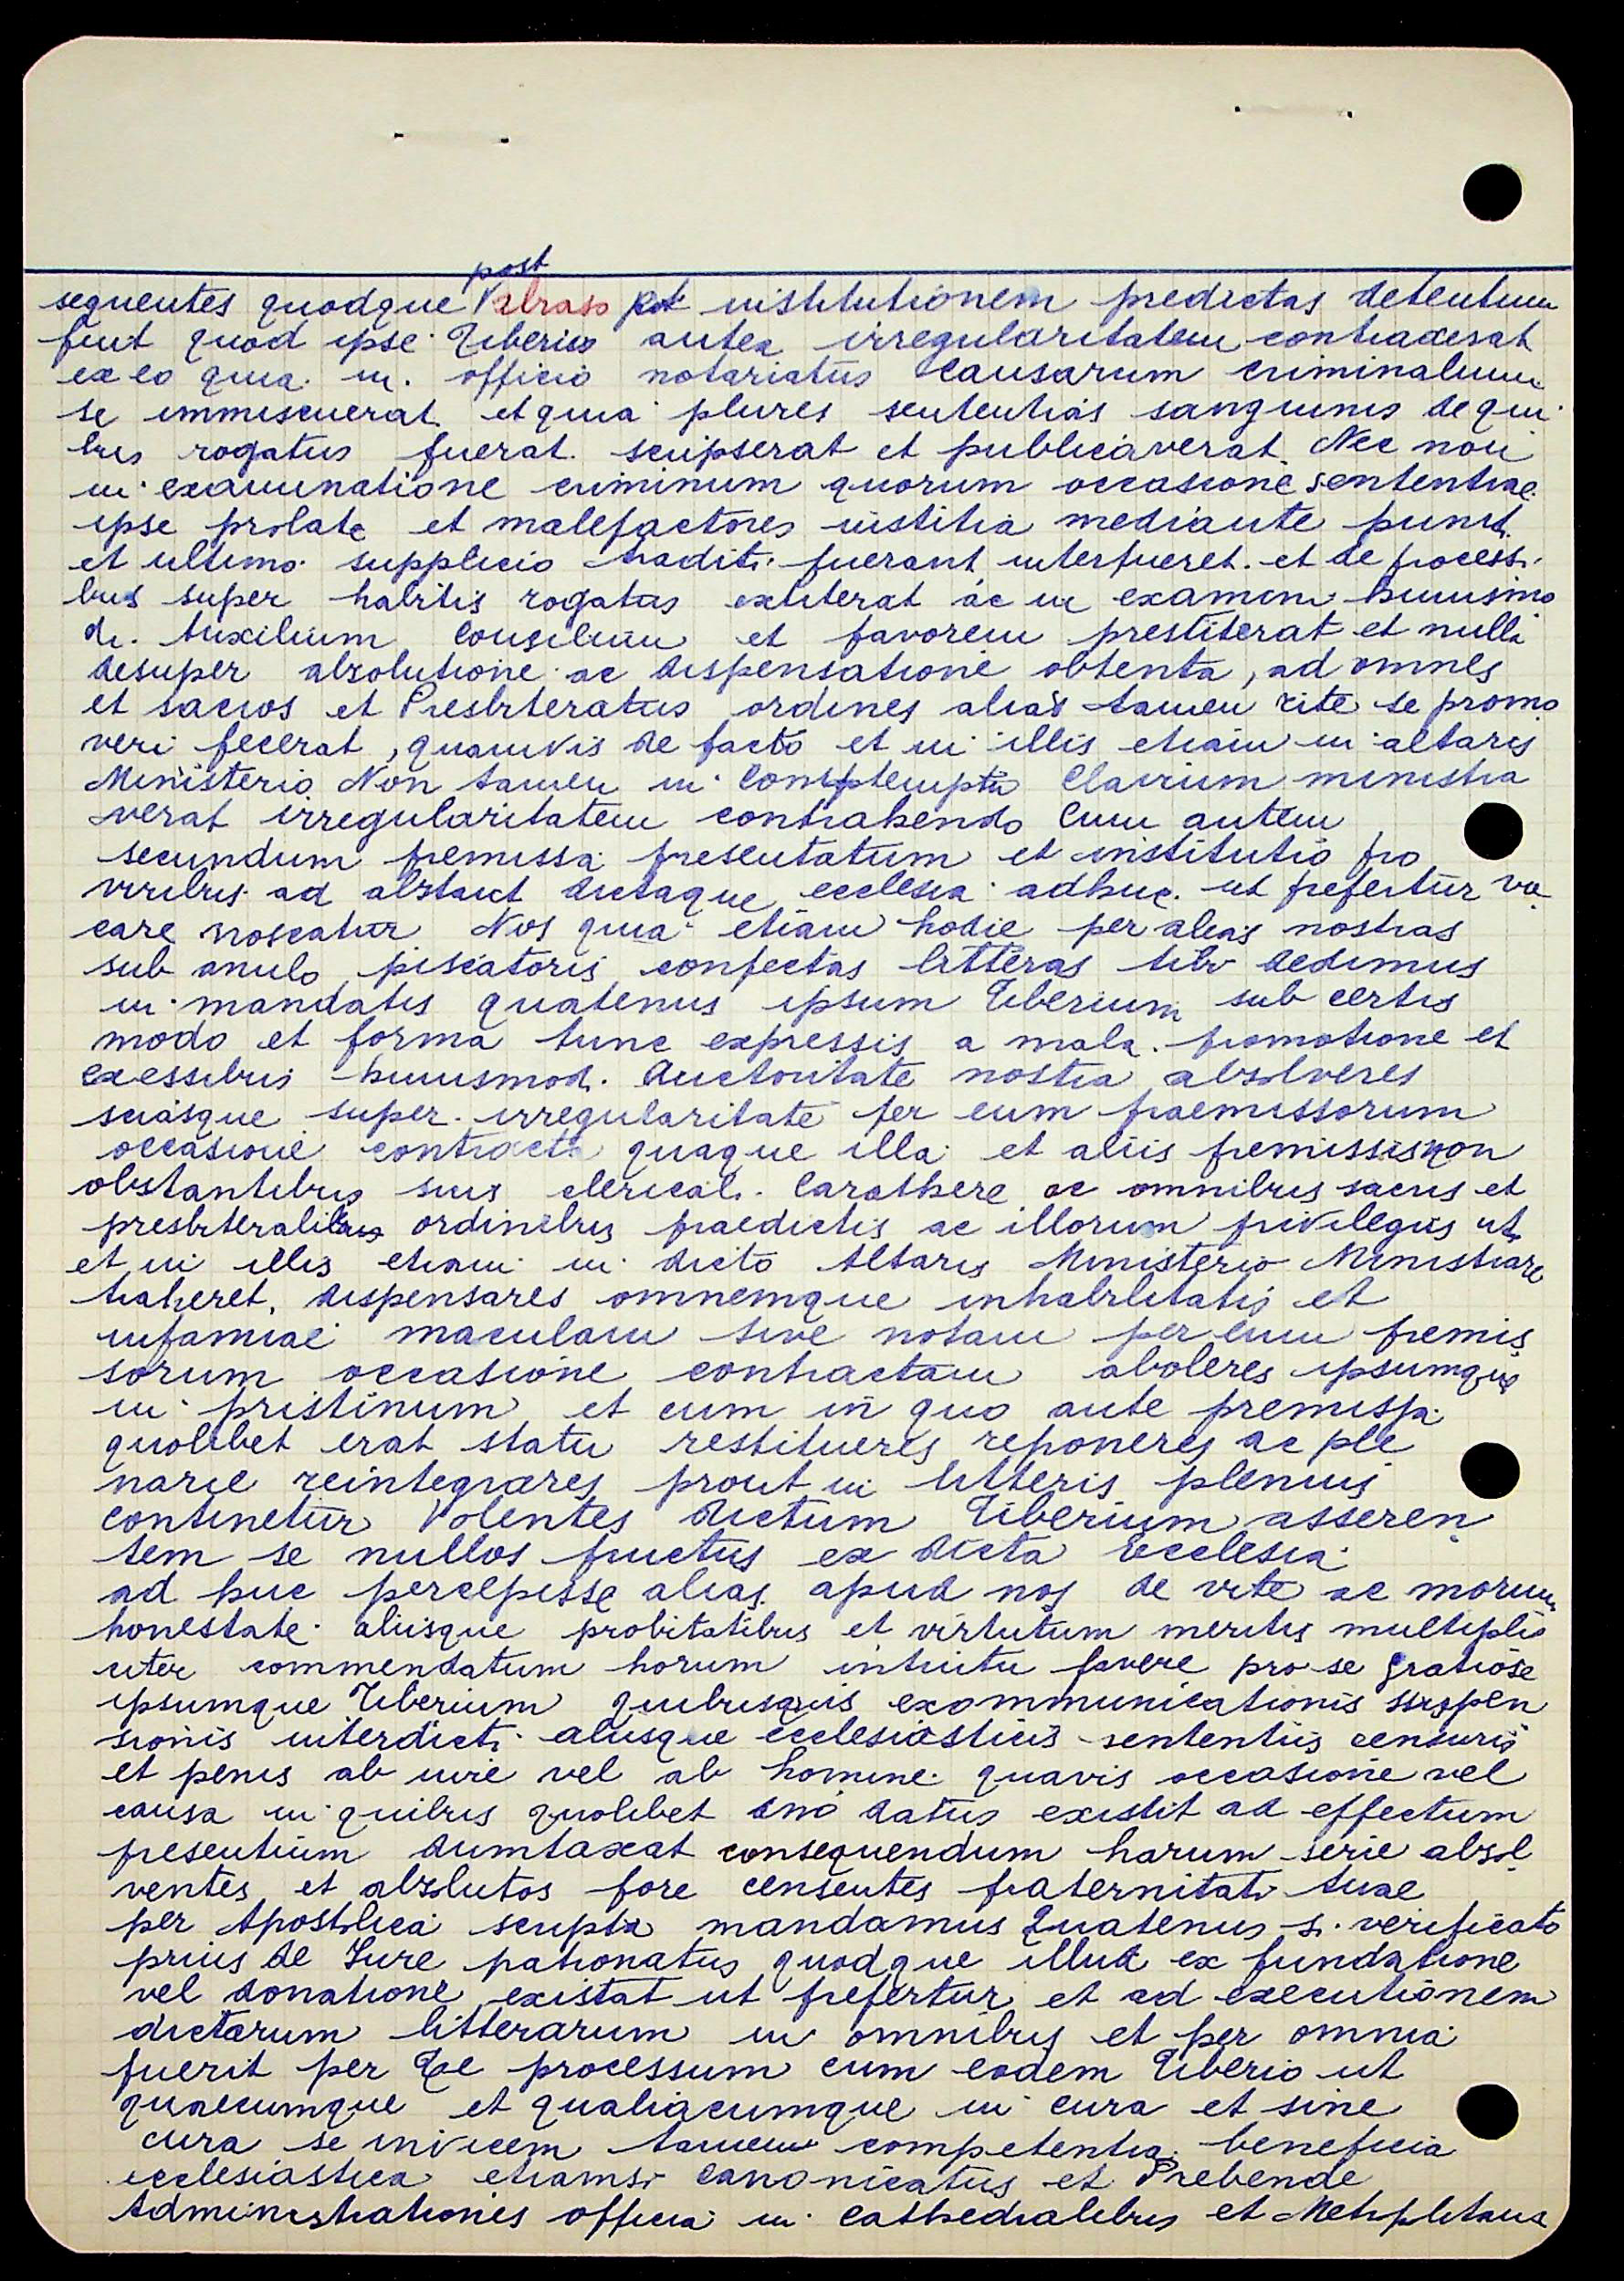 post
sequentes quodque abraso pot institutionem predictas detentum
fuit quod ipse Tiberius antea irregularitatem contraxerat
ex eo quia in officio notariatus Causarum criminalium
se immiscuerat et quia plures sententias sanguinis de qui
bus rogatus fuerat scripserat et publicaverat. Nec non
in examinatione criminum quorum occasione sententiae
ipse prolate et malefactores iustitia mediante puniti
et ultimo supplicio traditi fuerant interfueret. et de processi
bus super habitis rogatus extiterat ac in examine huiusmo
di. Auxilium Consilium et favorem prestiterat et nulla
desuper absolutione ac dispensatione obtenta, ad omnes
et sacros et Presbiteratus ordines alias tamen rite se promo
veri fecerat, quamvis de facto et in illis etiam in altaris
Ministerio Non tamen in Comptemptu Clavium ministra
verat irregularitatem contrahendo Cum autem
secundum premissa presentatum et institutio pro
viribus ad abstant dictaque ecclesia adhuc. ut prefertur va
care noscatur Nos quia etiam hodie per alias nostras
sub anulo piscatoris confectas litteras tibi dedimus
in mandatis quatenus ipsum Tiberium sub certis
modo et forma tunc expressis a mala promotione et
excessibus huiusmodi. Auctoritate nostra absolveres
sciasque super irregularitate per eum praemissorum
occasione contracta quaque illa et aliis premissis non
obstantibus suis clericali. Carathere ac omnibus sacris et
presbiteralibus ordinibus praedictis ac illorum privilegiis uti
et in illis etiam in dicto Altaris Ministerio Ministrare
traheret, dispensares omnemque inhabilitatis et
infamiae maculam sive notam per eum premis
sorum occasione contractam aboleres ipsumque
in pristinum et eum in quo ante premissa
quolibet erat statu restitueres reponeres ac ple
narie reintegrares prout in litteris plenius
continetur Volentes dictum Tiberium asseren
tem se nullos fructus ex dicta Ecclesia
ad huc percepisse alias apud nos de vite ac morum
honestate aliisque probitatibus et virtutum meritis multipli
citer commendatum horum intuitu favere pro se gratiose
ipsumque Tiberium quibusquis exommunicationis suspen
sionis interdicti aliisque ecclesiasticis sententiis censuris
et penis ab iure vel ab homine quavis occasione vel
causa in quibus quolibet ino datus existit ad effectum
presentium dumtaxat consequendum harum serie absol
ventes et absolutos fore censentes fraternitati tuae
per Apostolica scripta mandamus Quatenus si verificato
prius de Iure patronatus quodque illud ex fundatione
vel donatione existat ut prefertur et ad executionem
dictarum litterarum in omnibus et per omnia
fuerit per Te processum cum eodem Tiberio ut
quaecumque et qualiacumque in cura et sine
cura se invicem tamen competentia beneficia
ecclesiastica etiamsi Canonicatus et Prebende
Administrationes officia in Cathedralibus et Metiplitana